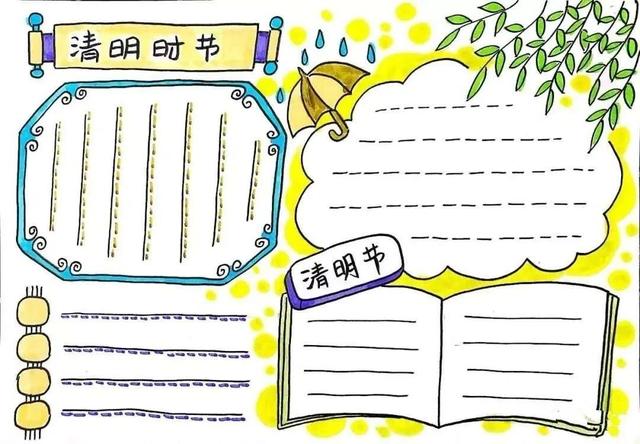 清明时节
清明节